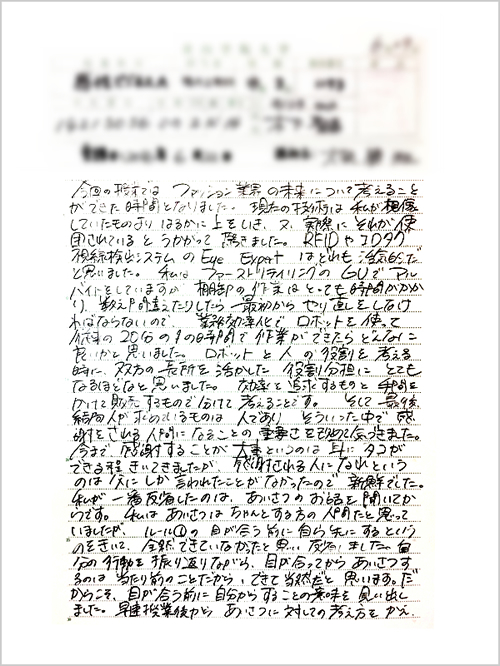 今回の授業では ファッション業界の未来について考えること
ができた時間となりました。 現在の技術は 私が想像
していたものより はるかに上をいき、又、実際にそれが使
用されていると うかがって 驚きました。RFIDや
視線検出システムの Eye Expert はとても
と思いました。 私は ファーストリテイリングの GUで アル
バイトをしていますが、棚卸の作業はとっても時間がかか
り、数え間違えたりしたら 最初から やり直しをしなけ
ればならないので、業務効率化で ロボットを使って
20分の1の時間で 作業ができたらどんなに
良いかと思いました。 ロボットと人の役割を考える
時に、双方の長所を活かした 役割分担に とても
なるほどなと思いました。 効率を追求するものと 手間を
かけて販売するもので分けて 考えることです。 そして 最後、
結局人が求めているものは 人であり、そういった中で 感
謝をされる人間になることの 重要さを改めて気づきました。
今まで、感謝することが 大事というのは 耳にタコが
できる程 きいてきましたが、感謝される人になれという
のは 言われたことがなかったので 新鮮でした。
私が 一番反省したのは、あいさつの お話を聞いてか
らです。 私は あいさつは ちゃんとする方の 人間だと思って
いましたが、ルール①の 目が合う前に 自ら先にするという
のをきいて、全然できていなかったと思い 反省しました。自
分の行動を 振り返りながら、目が合ってから あいさつす
るのは 当たり前のことだから、できて当然だと 思います。だ
からこそ、目が合う前に 自分からすることの意味を 見い出し
ました。早速授業後から あいさつに対しての考え方を かえ、